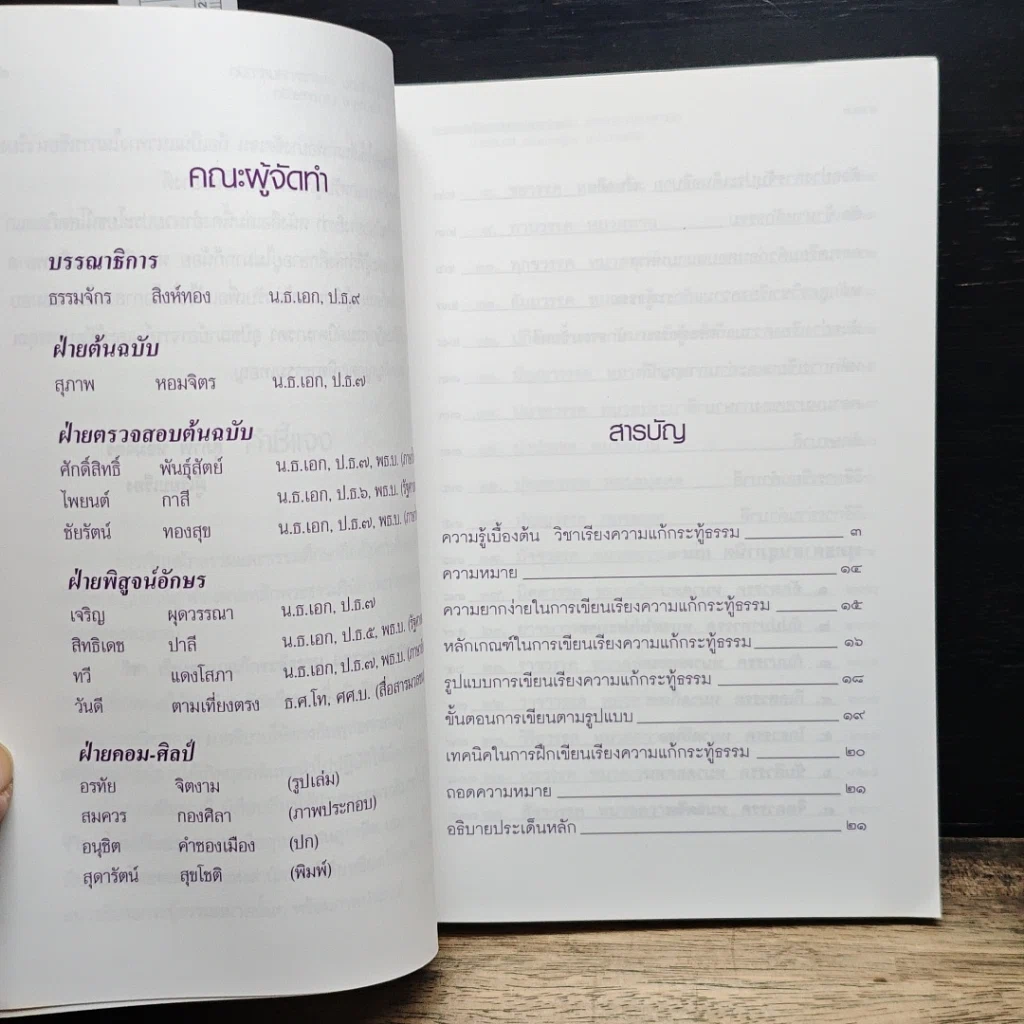 คณะผู้จัดทำ
บรรณาธิการ
ธรรมจักร สิงห์ทอง น.ธ.เอก, ป.ธ.๙
ฝ่ายต้นฉบับ
สุภาพ หอมจิตร น.ธ.เอก, ป.ธ.๗
ฝ่ายตรวจสอบต้นฉบับ
ศักดิ์สิทธิ์ พันธุ์สัตย์ น.ธ.เอก, ป.ธ.๗, พธ.บ.
ไพยนต์ กาสี น.ธ.เอก, ป.ธ.๖, พธ.บ.
ชัยรัตน์ ทองสุข น.ธ.เอก, ป.ธ.๗, พธ.บ.
ฝ่ายพิสูจน์อักษร
เจริญ ผุดวรรณา น.ธ.เอก, ป.ธ.๗
สิทธิเดช ปาลี น.ธ.เอก, ป.ธ.๕, พธ.บ.
ทวี แดงโสภา น.ธ.เอก, ป.ธ.๗, พธ.บ.
วันดี ตามเที่ยงตรง ธ.ศ.โท, ศศ.บ.
ฝ่ายคอม-ศิลป์
อรทัย จิตงาม (รูปเล่ม)
สมควร กองศิลา (ภาพประกอบ)
อนุชิต คำซองเมือง (ปก)
สุดารัตน์ สุขโชติ (พิมพ์)
สารบัญ
ความรู้เบื้องต้น วิชาเรียงความแก้กระทู้ธรรม ๓
ความหมาย ๑๔
ความยากง่ายในการเขียนเรียงความแก้กระทู้ธรรม ๑๕
หลักเกณฑ์ในการเขียนเรียงความแก้กระทู้ธรรม ๑๖
รูปแบบการเขียนเรียงความแก้กระทู้ธรรม ๑๘
ขั้นตอนการเขียนตามรูปแบบ ๑๙
เทคนิคในการฝึกเขียนเรียงความแก้กระทู้ธรรม ๒๐
ถอดความหมาย ๒๑
อธิบายประเด็นหลัก ๒๑